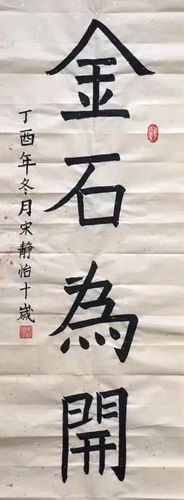 金石為開
丁酉年冬月宋静怡十歲